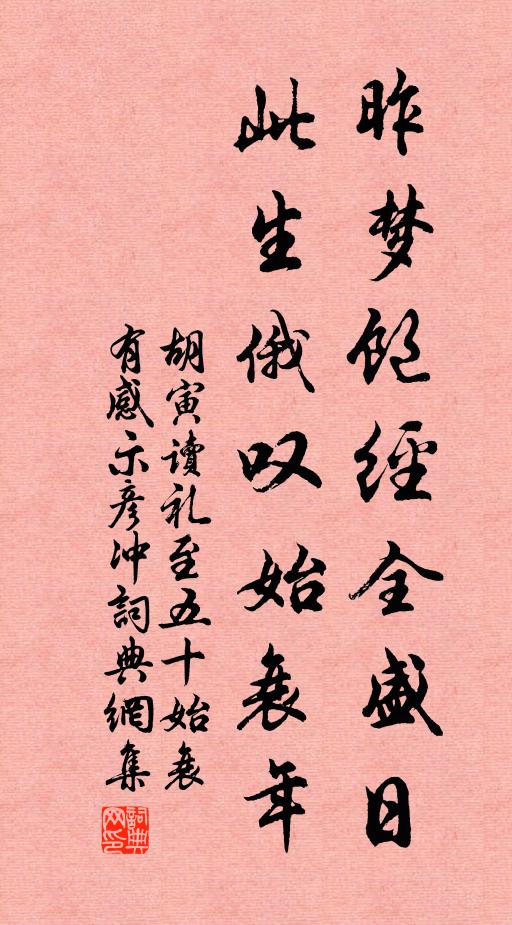 昨梦饱经全盛日
此生俄叹始衰年
胡寅读礼至五十始衰
有感示彦冲词典網集
詞典网印